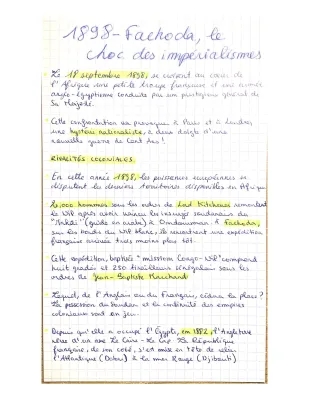 1898 - Fachoda, le
choc des impérialismes
Le 18 septembre 1898, se croisent au cœur de
l'Afrique une petite troupe française et une armée
anglo-égyptienne conduite par un prestigieux général de
Sa Majesté.
Cette confrontation va provoquer à Paris et à Londres
une hystérie nationaliste, à deux doigts d'une
nouvelle guerre de Cent Ans !
RIVALITÉS COLONIALES
En cette année 1898, les puissances européennes se
disputent les derniers territoires disponibles en Afrique
20,000 hommes sous les ordres de Lord Kitchener remontent
le Nil après avoir vaincu les insurgés soudanais du
"Mahdi" (guide en arabe) à Omdourman. À Fachoda,
sur les bords du Nil blanc, ils rencontrent une expédition
française arrivée trois mois plus tôt.
Cette expédition, baptisée "mission Congo-Nil" comprend
huit gradés et 250 tirailleurs sénégalais sous les
ordres de Jean-Baptiste Marchand
Lequel, de l'Anglais ou du Français, cédera la place ?
La possession du Soudan et la continuité des empires
coloniaux sont en jeu.
Depuis qu'elle a occupé l'Égypte, en 1882, l'Angleterre
rêve d'un axe Le Caire - Le Cap. La République
française, de son côté, s'est mise en tête de relier
l'Atlantique (Dakar) à la mer Rouge (Djibouti)